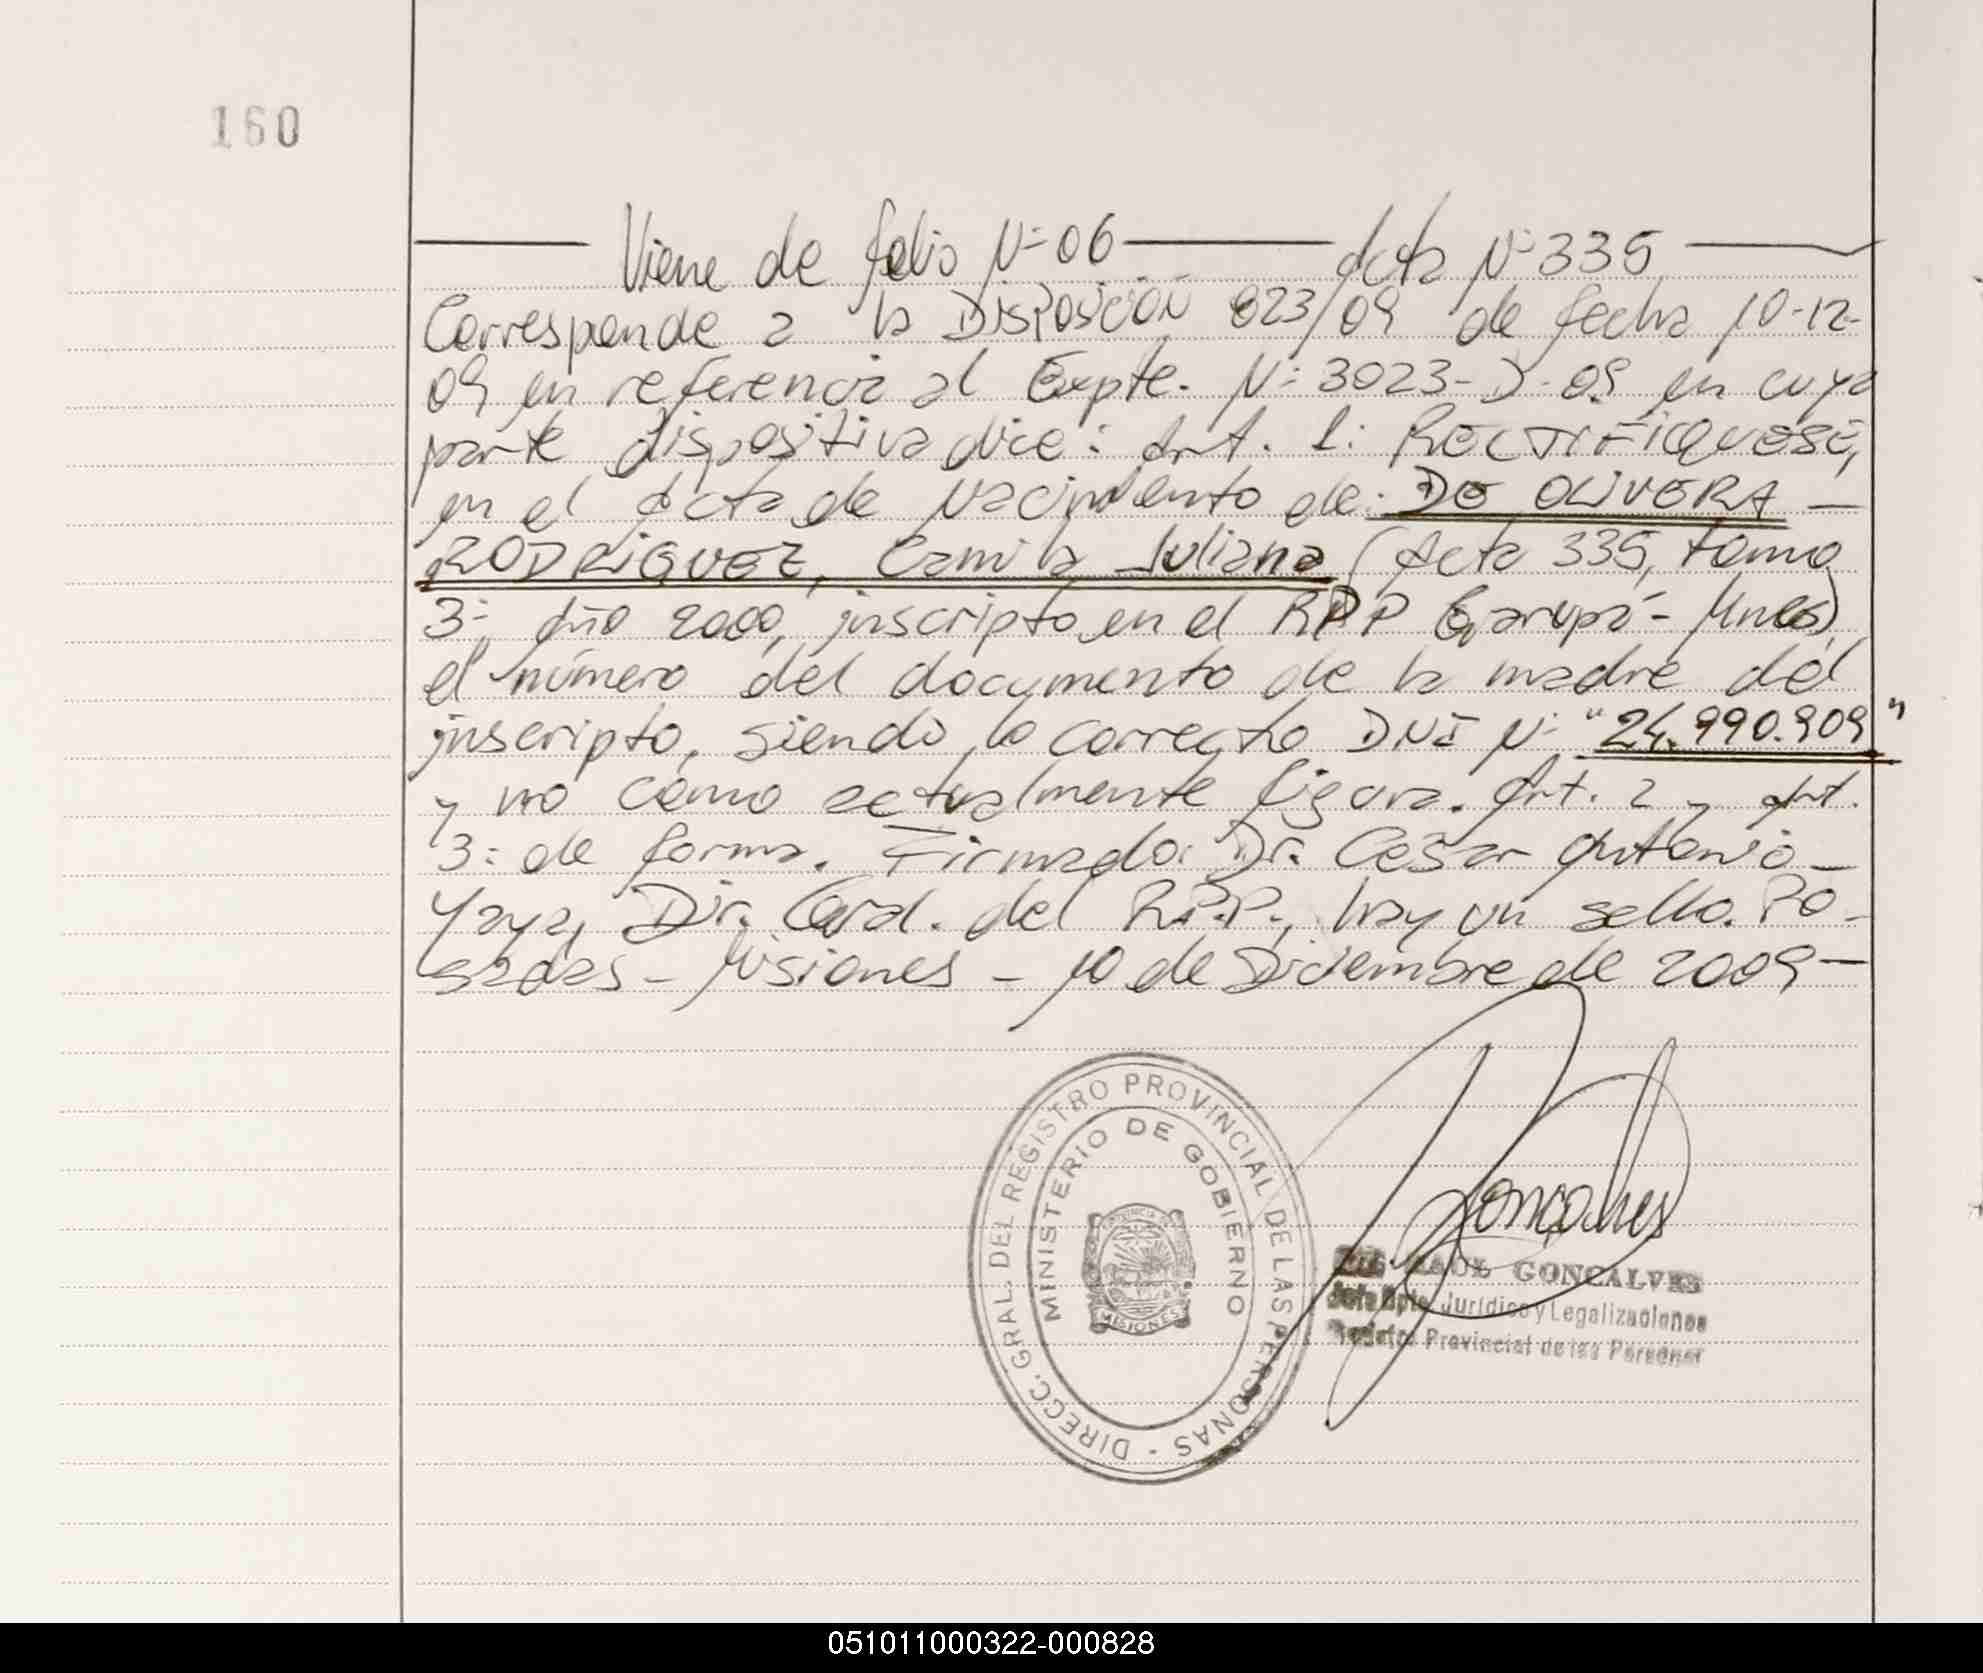 160
Viene de folio Nº 06 Acta Nº 335
Corresponde a la DISPOSICIÓN 823/09 de fecha 10-12-
09 en referencia al Expte. Nº 3023-D-09 en cuya
parte dispositiva dice: Art. 1: RECTIFIQUESE,
en el Acta de Nacimiento de: DE OLIVERA -
RODRIGUEZ, Camila Juliana (Acta 335, tomo
3º, Año 2000, inscripto en el RPP Garupá - Mnes)
el número del documento de la madre del
inscripto, siendo lo correcto DNI Nº "24.990.909"
y no como actualmente figura. Art. 2 y Art.
3: de forma. Firmado: Dr. César Antonio -
Yaya, Dir. Gral. del R.P.P., hay un sello. Po-
sadas - Misiones - 10 de Diciembre de 2009 -
DIRECC. GRAL. DEL REGISTRO PROVINCIAL DE LAS PERSONAS -
MINISTERIO DE GOBIERNO
PROVINCIA
MISIONES
Goncalves
RAUL GONCALVES
Jefe Dpto. Jurídico y Legalizaciones
Registro Provincial de las Personas
051011000322-000828